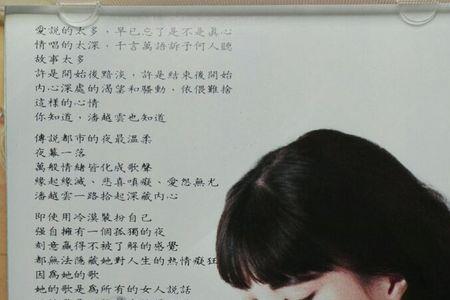 愛說的太多，早已忘了是不是真心
情唱的太深，千言萬語訴予何人聽
故事太多
許是開始後黯淡，許是結束後開始
內心深處的渴望和騷動，依偎難捨
這樣的心情
你知道，潘越雲也知道
傳說都市的夜最溫柔
夜幕一落
萬般情緒皆化成歌聲
緣起緣滅、悲喜嗔癡、愛怨無尤
潘越雲一路拾起深藏內心
即使用冷漠裝扮自己
強自擁有一個孤獨的夜
刻意贏得不被了解的感覺
都無法隱藏她對人生的熱情癡狂
因為她的歌
她的歌是為所有的女人說話